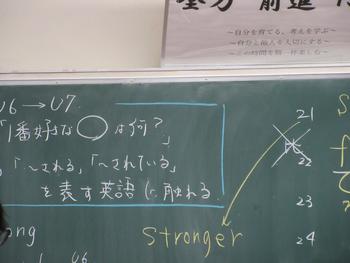 全力 前進
～自分を育てる、考えを学ぶ～
～自分と他人を大切にする～
U6→U7
「1番好きな○は何？」
「～される」「～されている」
を表す英語に触れる
21
22
23
24
stronger
U6